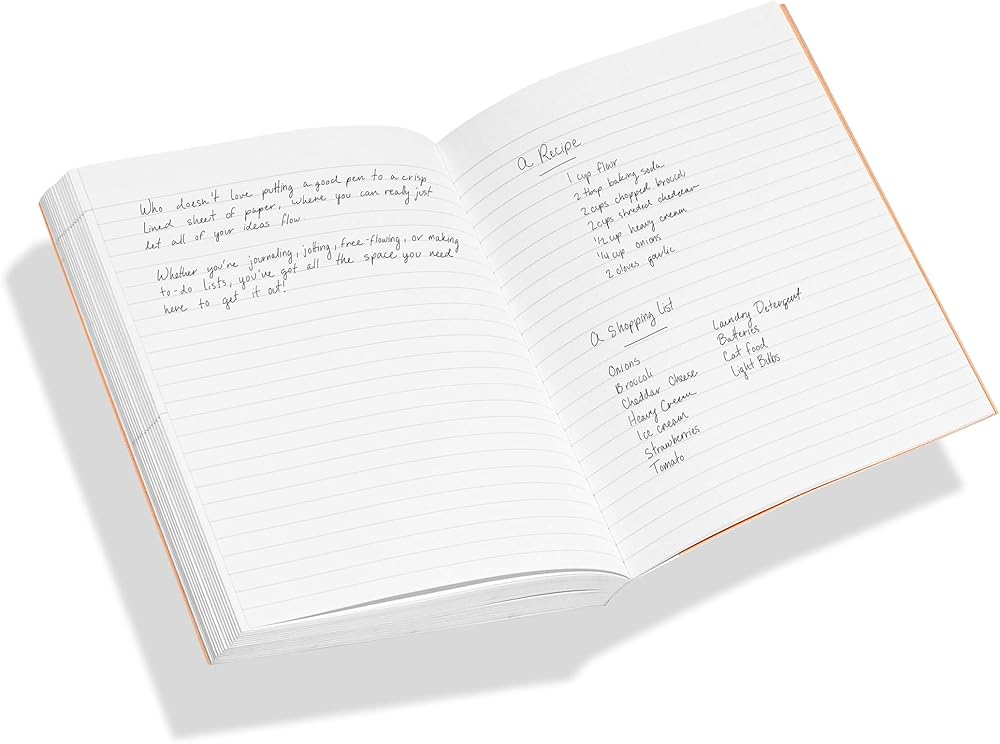 Who doesn't love putting a good pen to a crisp
lined sheet of paper, where you can really just
let all of your ideas flow
Whether you're journaling, jotting, free-flowing, or making
to-do lists, you've got all the space you need
here to get it out!
A Recipe
1 cup flour
2 tbsp baking soda
2 cups chopped brocoli
2 cups shreded cheddar
1/2 cup heavy cream
1/4 cup onions
2 cloves garlic
A Shopping List
Onions
Brocoli
Cheddar Cheese
Heavy Cream
Ice cream
Strawberries
Tomato
Laundry Detergent
Batteries
Cat food
Light Bulbs